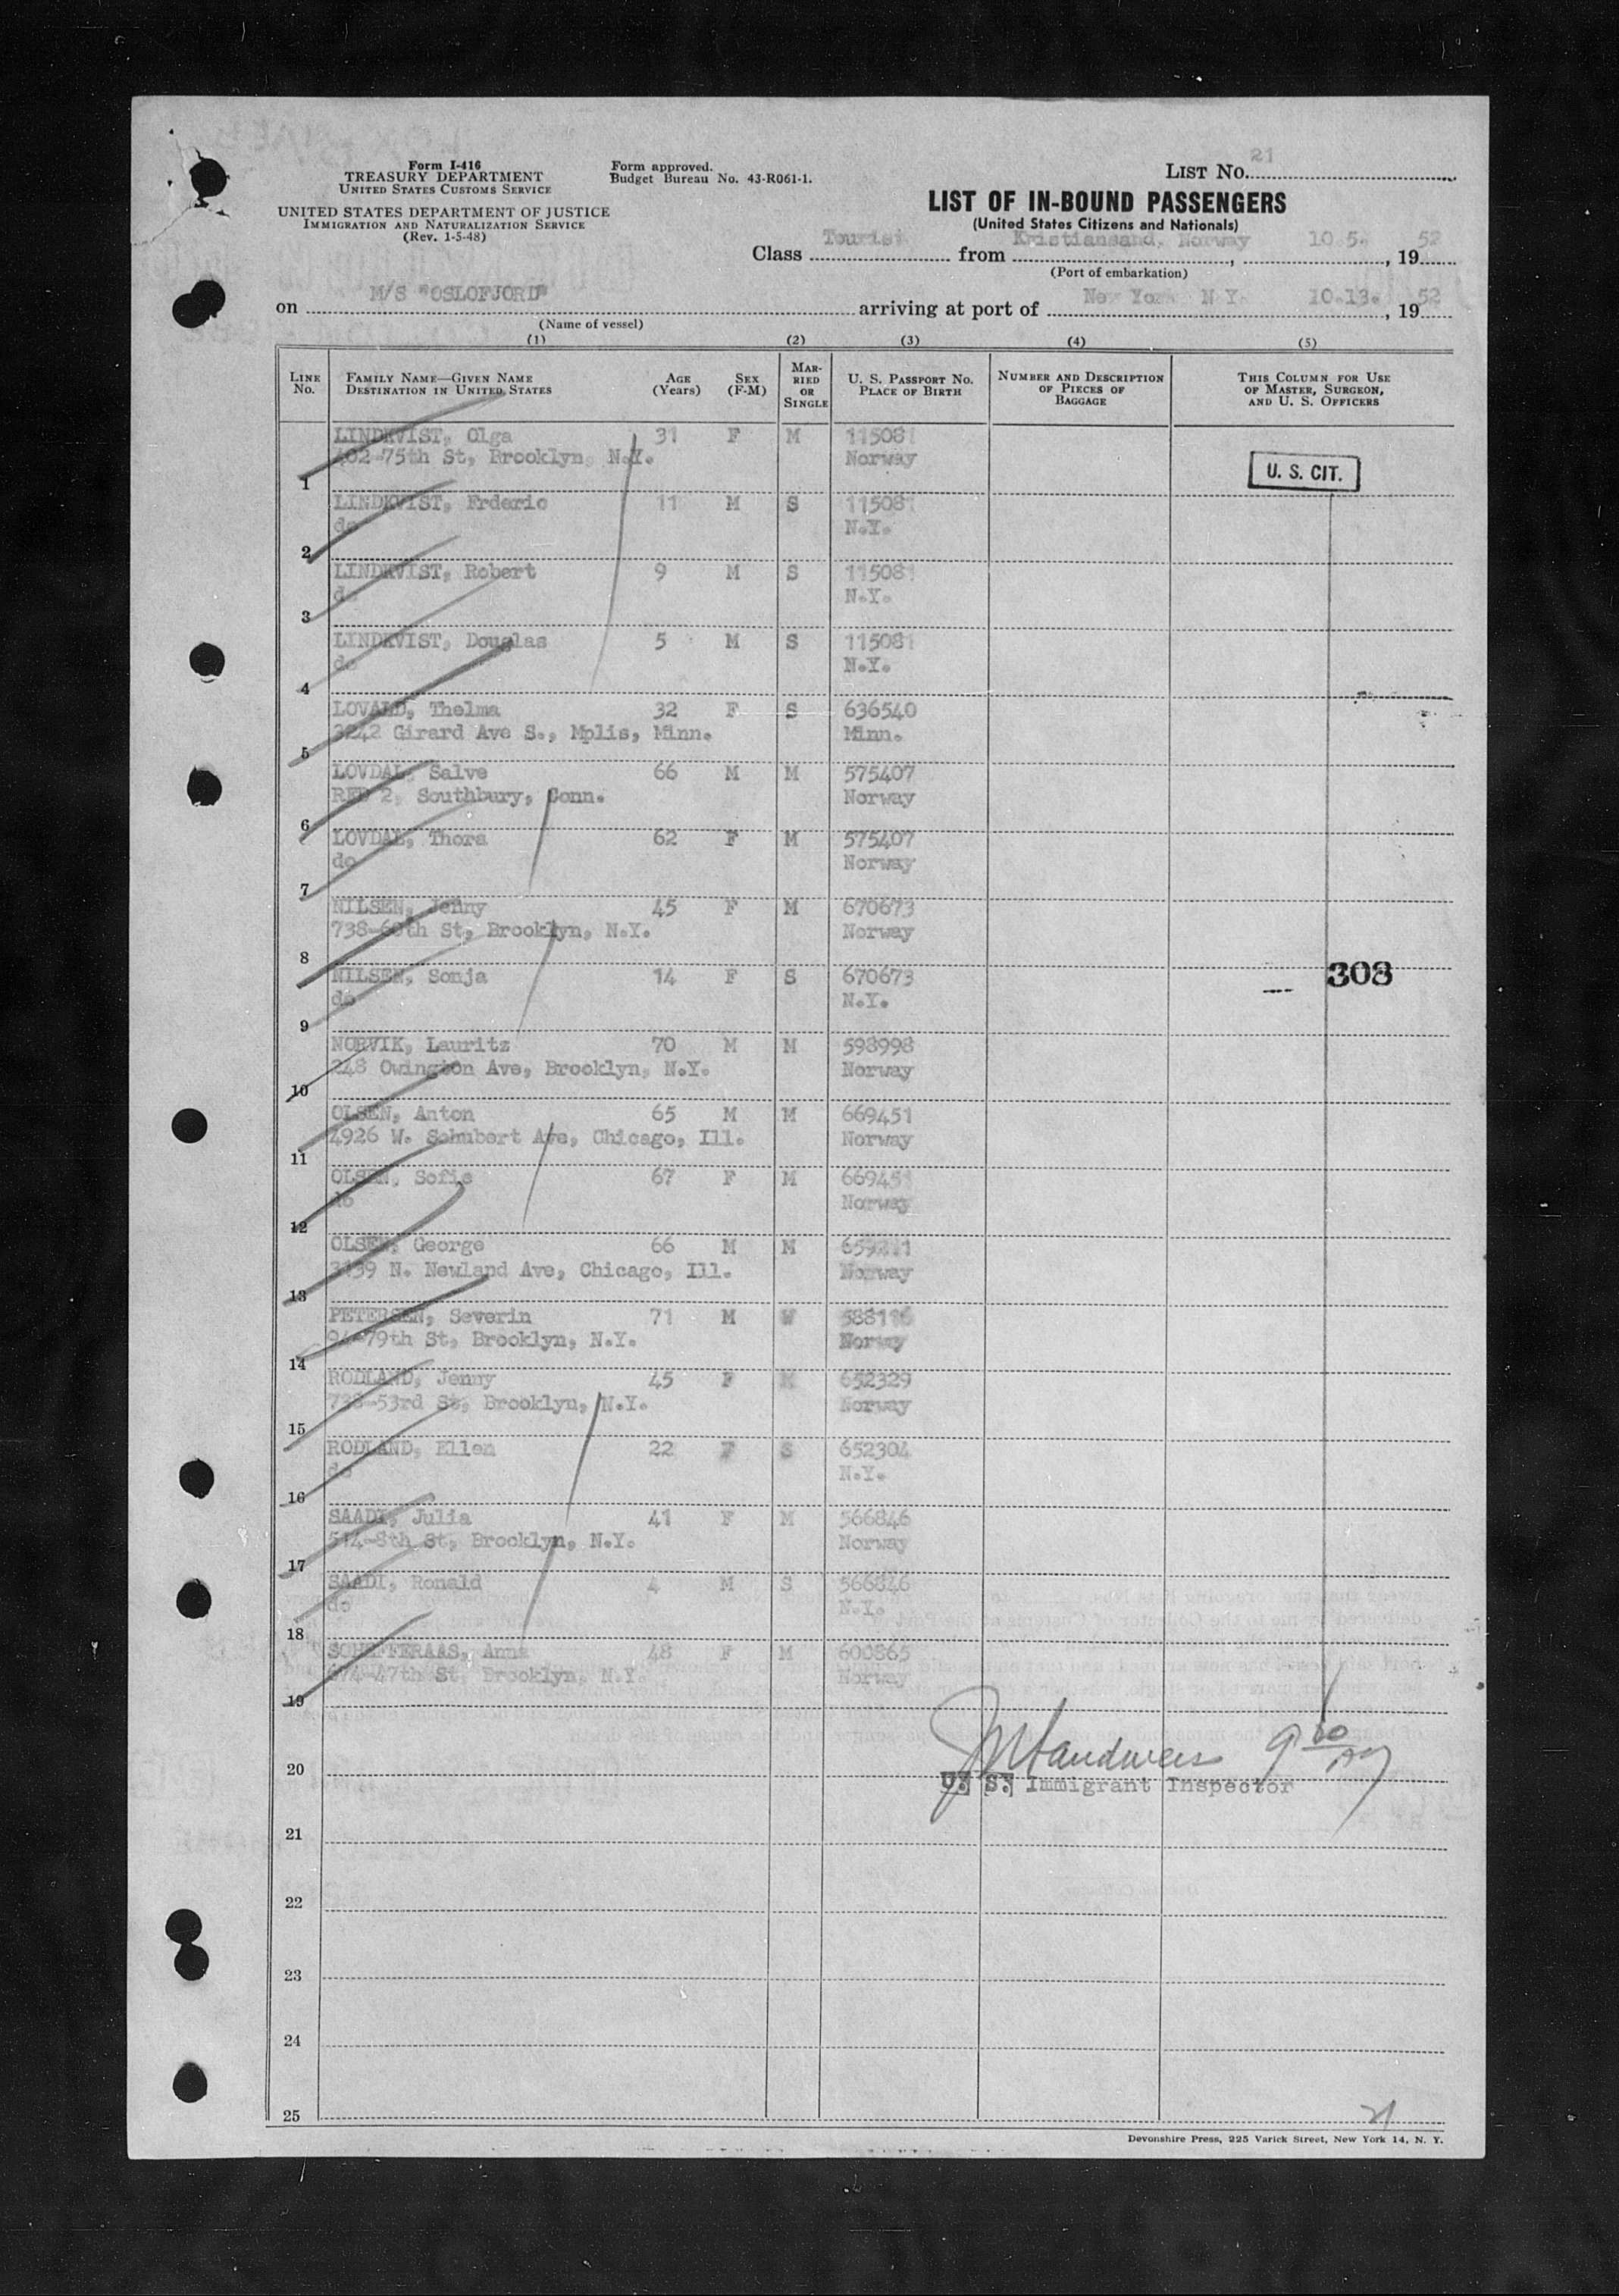 Form I-416
TREASURY DEPARTMENT
UNITED STATES CUSTOMS SERVICE
UNITED STATES DEPARTMENT OF JUSTICE
IMMIGRATION AND NATURALIZATION SERVICE
(Rev. 1-5-48)
Form approved.
Budget Bureau No. 43-R061-1.
LIST No. 21
LIST OF IN-BOUND PASSENGERS
(United States Citizens and Nationals)
Class Tourist from Kristiansand, Norway 10.5. , 19 52
(Port of embarkation)
on M/S "OSLOFJORD" arriving at port of New York N Y. 10.13. , 19 52
(Name of vessel)
(1) (2) (3) (4) (5)
LINE No. FAMILY NAME—GIVEN NAME DESTINATION IN UNITED STATES AGE (Years) SEX (F-M) MARRIED OR SINGLE U. S. PASSPORT NO. PLACE OF BIRTH NUMBER AND DESCRIPTION OF PIECES OF BAGGAGE THIS COLUMN FOR USE OF MASTER, SURGEON, AND U. S. OFFICERS
LINDKVIST, Olga 31 F M 115081
402-75th St, Brooklyn, N.Y. Norway
U. S. CIT.
1
LINDKVIST, Frderic 11 M S 115081
do N.Y.
2
LINDKVIST, Robert 9 M S 115081
do N.Y.
3
LINDKVIST, Douglas 5 M S 115081
do N.Y.
4
LOVALD, Thelma 32 F S 636540
3242 Girard Ave S., Mplis, Minn. Minn.
5
LOVDAL, Salve 66 M M 575407
RED 2, Southbury, Conn. Norway
6
LOVDAL, Thora 62 F M 575407
do Norway
7
NILSEN, Jenny 45 F M 670673
738-60th St, Brooklyn, N.Y. Norway
8
NILSEN, Sonja 14 F S 670673 308
do N.Y.
9
NORVIK, Lauritz 70 M M 598998
248 Owington Ave, Brooklyn, N.Y. Norway
10
OLSEN, Anton 65 M M 669451
4926 W. Schubert Ave, Chicago, Ill. Norway
11
OLSEN, Sofie 67 F M 669451
do Norway
12
OLSEN, George 66 M M
3139 N. Newland Ave, Chicago, Ill. Norway
13
PETERSEN, Severin 71 M W 588116
94-79th St, Brooklyn, N.Y. Norway
14
RODLAND, Jenny 45 F M 652329
738-53rd St, Brooklyn, N.Y. Norway
15
RODLAND, Ellen 22 F S 652304
do N.Y.
16
SAADI, Julia 41 F M 566846
514-8th St, Brooklyn, N.Y. Norway
17
SAADI, Ronald 4 M S 566846
do N.Y.
18
SCHEFFERAAS, Anna 48 F M 600865
674-47th St, Brooklyn, N.Y. Norway
19
20
U. S. Immigrant Inspector
21
22
23
24
25
21
Devonshire Press, 225 Varick Street, New York 14, N. Y.